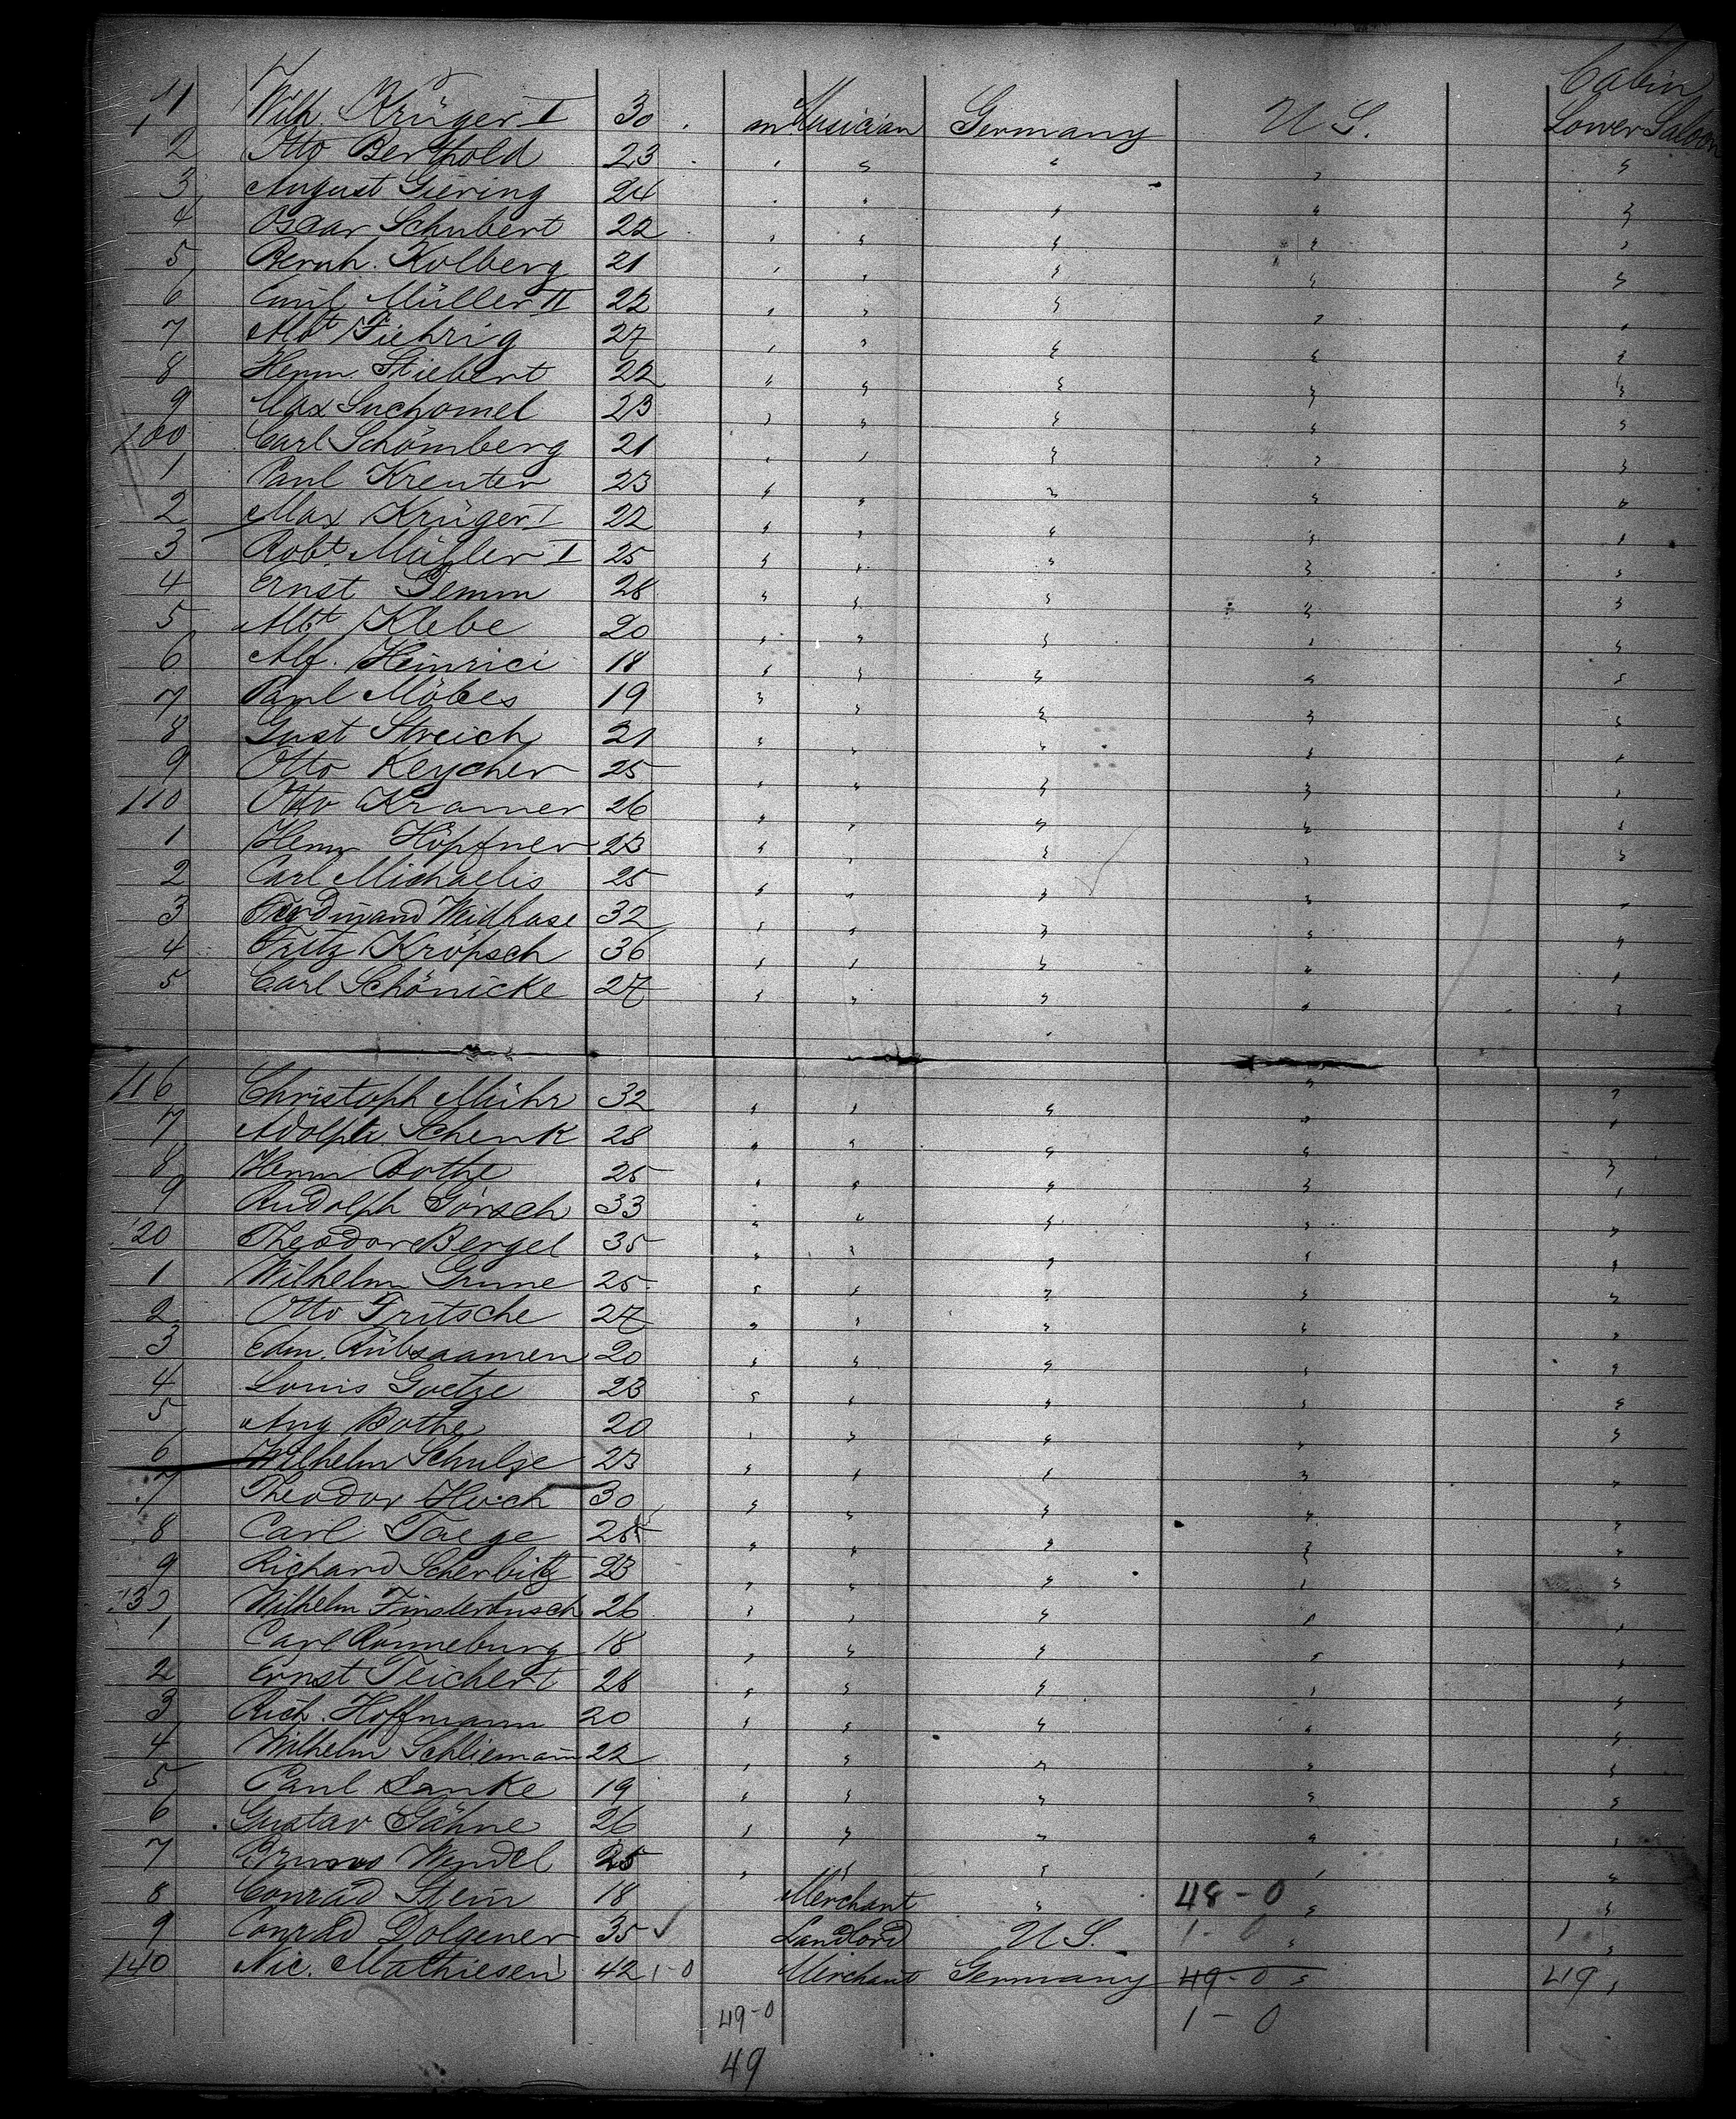 Cabin
91 Wilh. Krüger I 30 m Musician Germany U S. Lower Saloon
2 Otto Berthold 23 " " " " "
3 August Giering 24 " " " " "
4 Oscar Schubert 22 " " " " "
5 Bernh. Kolberg 21 " " " " "
6 Emil Müller II 22 " " " " "
7 Albt Fiehrig 27 " " " " "
8 Herm Stiebert 22 " " " " "
9 Max Suchomel 23 " " " " "
100 Carl Schömberg 21 " " " " "
1 Paul Kreuter 23 " " " " "
2 Max Krüger I 22 " " " " "
3 Robt. Müller I 25 " " " " "
4 Ernst Demm 28 " " " " "
5 Albt Klebe 20 " " " " "
6 Alf. Heinrici 18 " " " " "
7 Paul Möbes 19 " " " " "
8 Gust Streich 21 " " " " "
9 Otto Keycher 25 " " " " "
110 Otto Kramer 26 " " " " "
1 Herm Höpfner 23 " " " " "
2 Carl Michaelis 25 " " " " "
3 Ferdinand Weidhase 32 " " " " "
4 Fritz Kröpsch 36 " " " " "
5 Carl Schönicke 27 " " " " "
116 Christoph Mühr 32 " " " " "
7 Adolph Schenk 28 " " " " "
8 Herm Bothe 25 " " " " "
9 Rudolph Görsch 33 " " " " "
120 Theodor Bergel 35 " " " " "
1 Wilhelm Grune 25 " " " " "
2 Otto Fritsche 27 " " " " "
3 Edm. Rübsaamen 20 " " " " "
4 Louis Goetze 23 " " " " "
5 Aug Bothe 20 " " " " "
6 Wilhelm Schulze 23 " " " " "
7 Theodor Hoch 30 " " " " "
8 Carl Taege 25 " " " " "
9 Richard Scherbitz 23 " " " " "
130 Wilhelm Finsterbusch 26 " " " " "
1 Carl Rönneburg 18 " " " " "
2 Ernst Teichert 28 " " " " "
3 Rich. Hoffmann 20 " " " " "
4 Wilhelm Schliemann 22 " " " " "
5 Paul Lanke 19 " " " " "
6 Gustav Jähne 26 " " " " "
7 Bruno Wendel 25 " " " " "
8 Conrad Stein 18 Merchant " 48-0 " "
9 Conrad Dolgener 35 Landlord U S. 1-0 " 1 "
140 Nic. Mathiesen 42 1-0 Merchant Germany 49-0 " 49 "
49-0 1-0
49